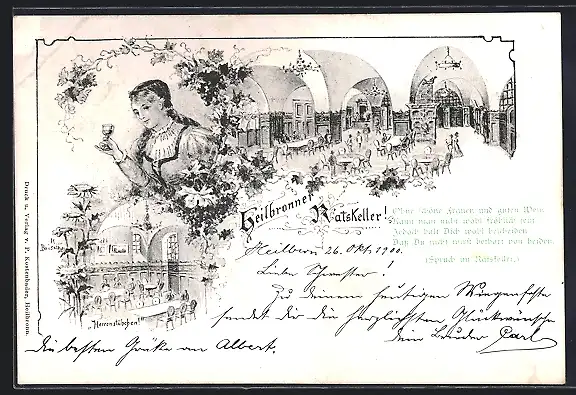 Heilbronner Ratskeller!
Ohne schöne Frauen und guten Wein
Kann man nicht wohl fröhlich sein
Jedoch halt Dich wohl bescheiden
Daß Du nicht wirst bethört von beiden
(Spruch im Ratskeller.)
"Herrenstübchen!"
Druck u. Verlag v. R. Kostenbader, Heilbronn.
Heilbronn 26. Okt. 1900.
Liebe Schwester!
Zu deinem heutigen Wiegenfeste
sendet dir die herzlichsten Glückwünsche
dein Bruder Carl
die besten Grüße an Albert.